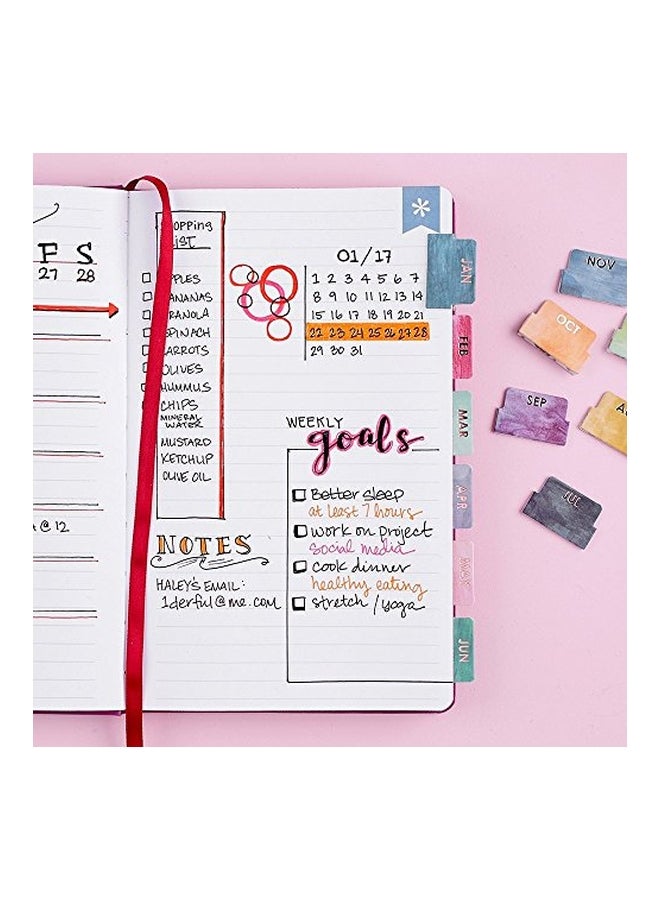 F S
27 28
@ 12
opping
LIST
PPLES
ANANAS
RANOLA
SPINACH
ARROTS
OLIVES
HUMMUS
CHIPS
MINERAL
WATER
MUSTARD
KETCHUP
OLIVE OIL
NOTES
HALEY'S EMAIL:
1derful@me.com
01/17
1 2 3 4 5 6 7
8 9 10 11 12 13 14
15 16 17 18 19 20 21
22 23 24 25 26 27 28
29 30 31
WEEKLY
goals
Better sleep
at least 7 hours
work on project
social media
cook dinner
healthy eating
stretch / yoga
JAN
FEB
MAR
APR
MAY
JUN
NOV
OCT
SEP
JUL